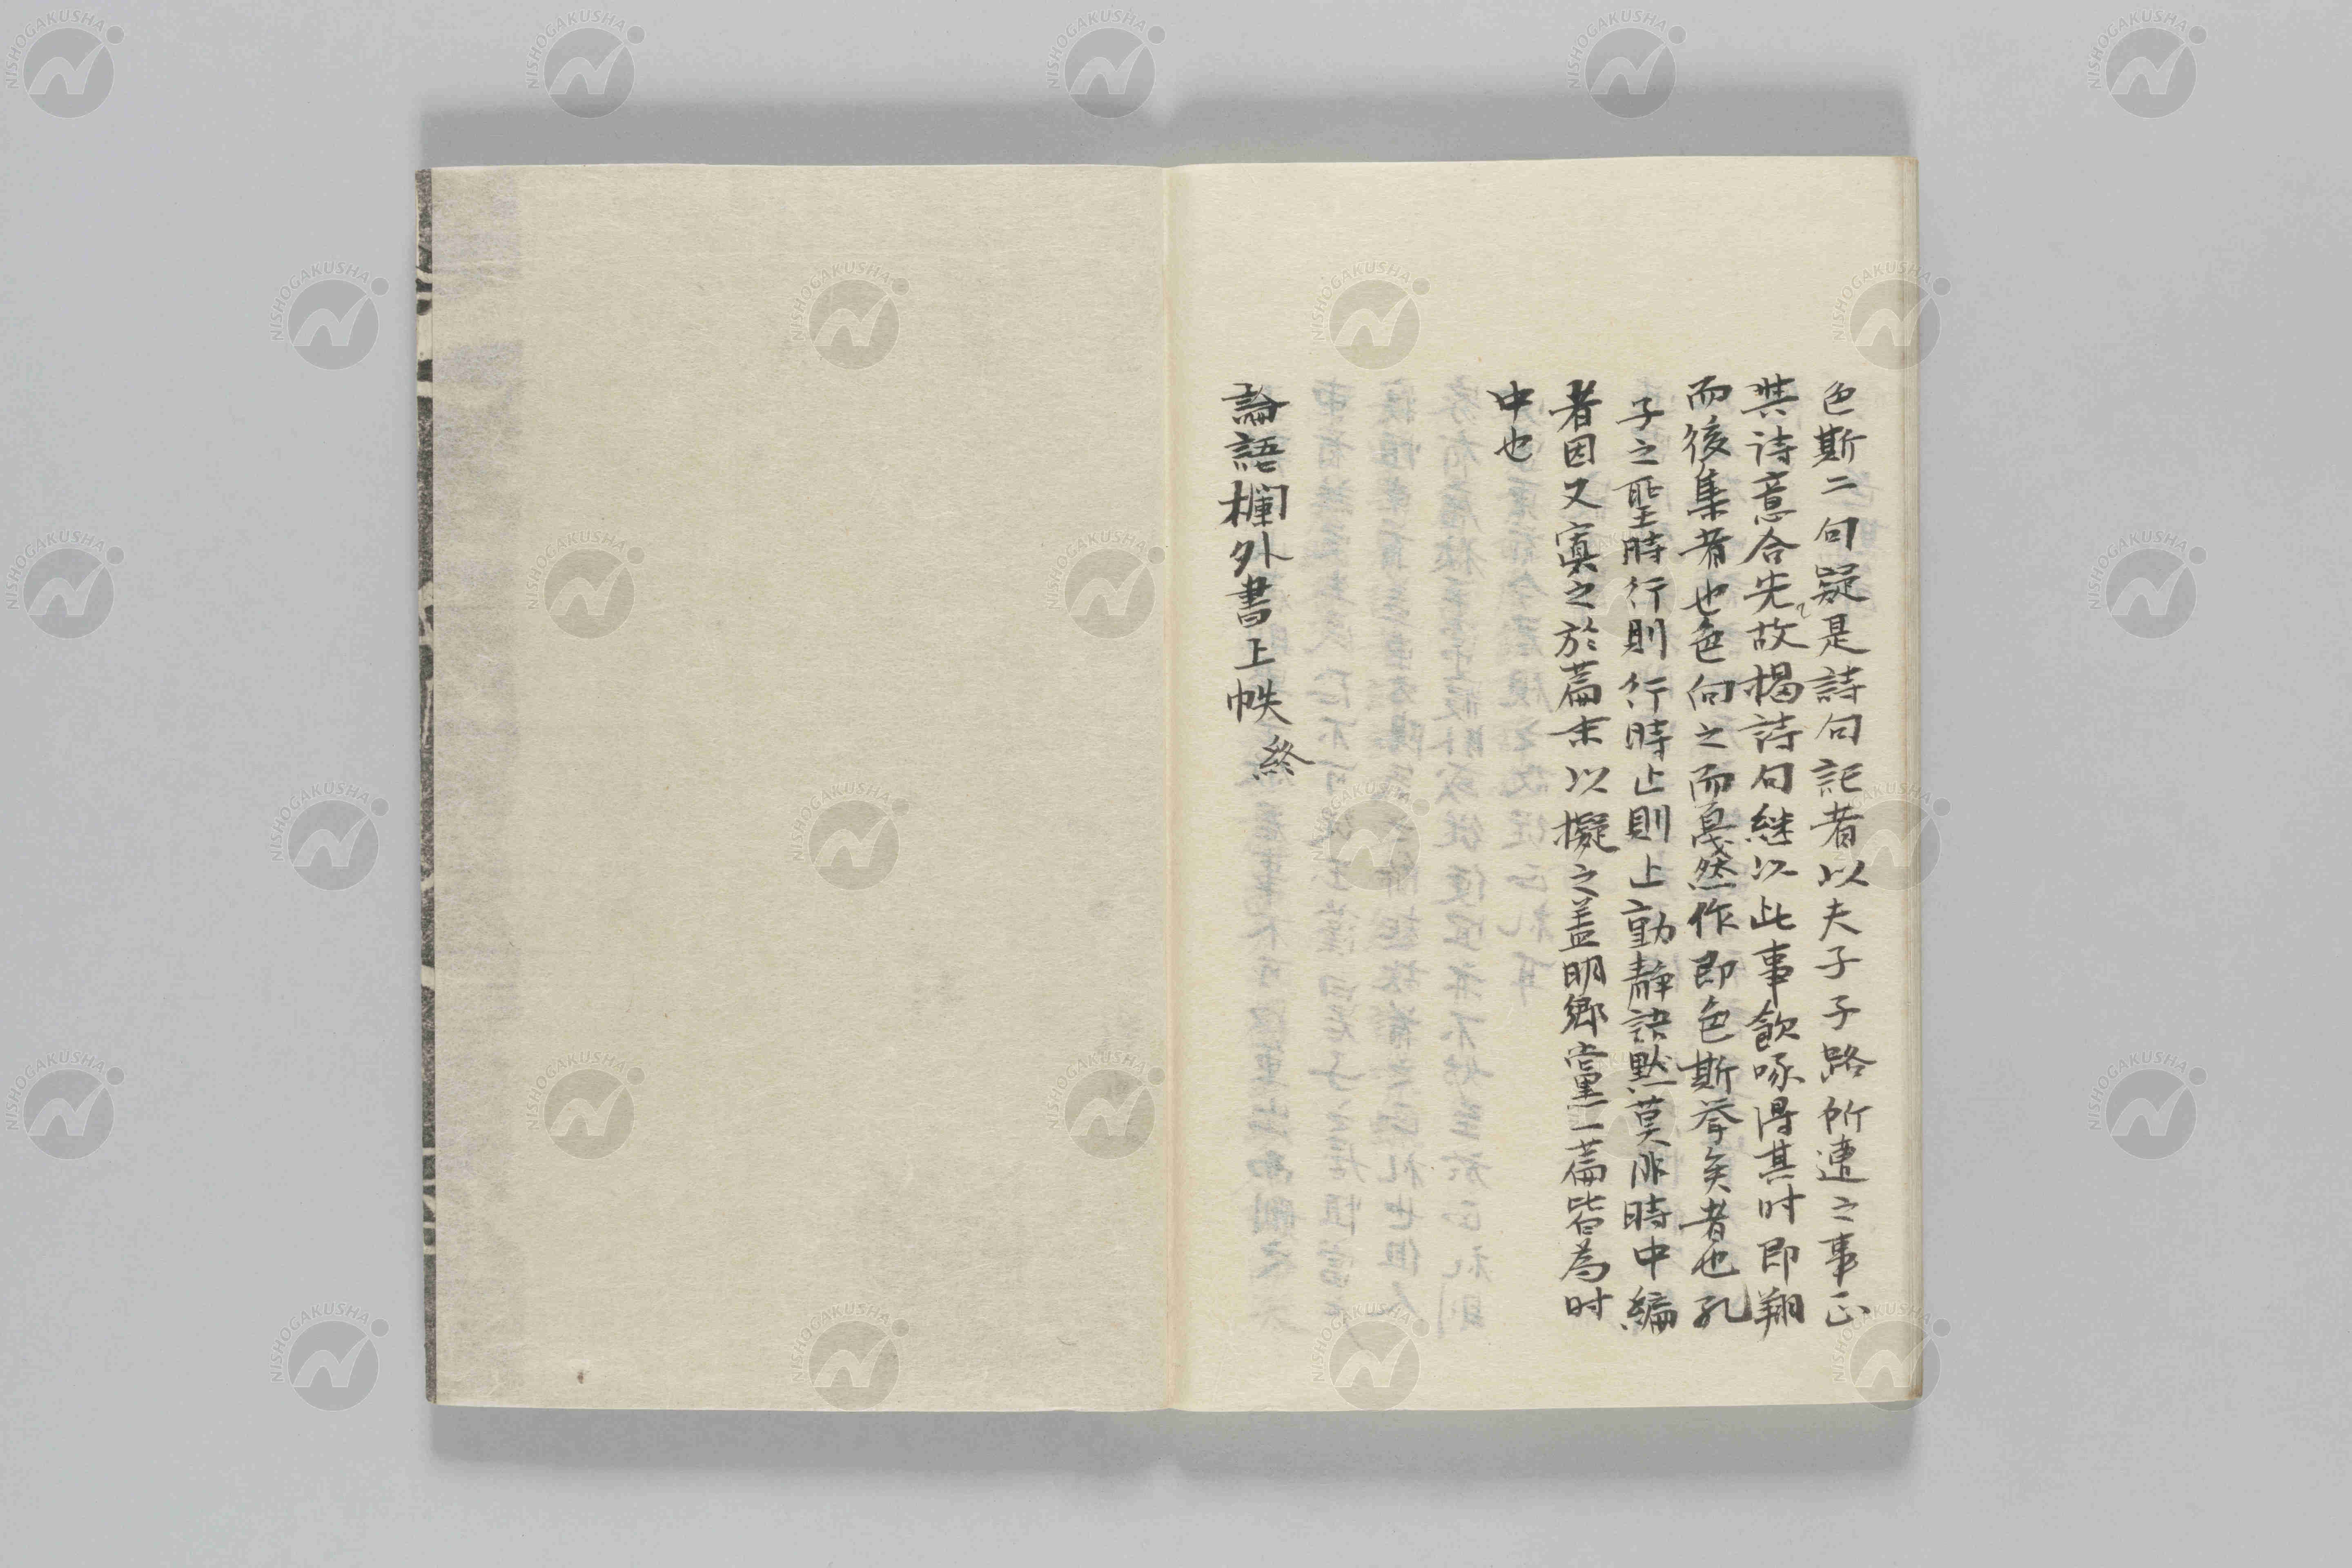 色斯二句疑是詩句記者以夫子子路所遭之事正
与詩意合先故掲詩句継以此事飲啄得其时即翔
而後集者也色向之而戞然作即色斯挙矣者也孔
子之聖時行則行時止則止動静語黙莫非時中編
者因又寘之於篇末以擬之盖明郷党一篇皆為时
中也
論語欄外書上帙 終
NISHOGAKUSHA